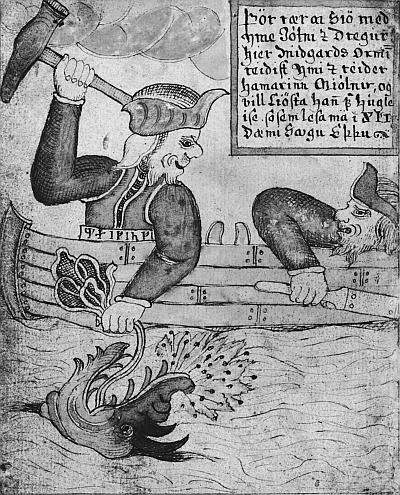 Þör rær a Siö med
Jötni & Dregur
hier Midgards Ormiñ
reidist Hmi & reider
hamarinn Miolnir, og
vill liösta hañ hugle
ise sosem lesa ma i
Dæmi Sögu Eddu